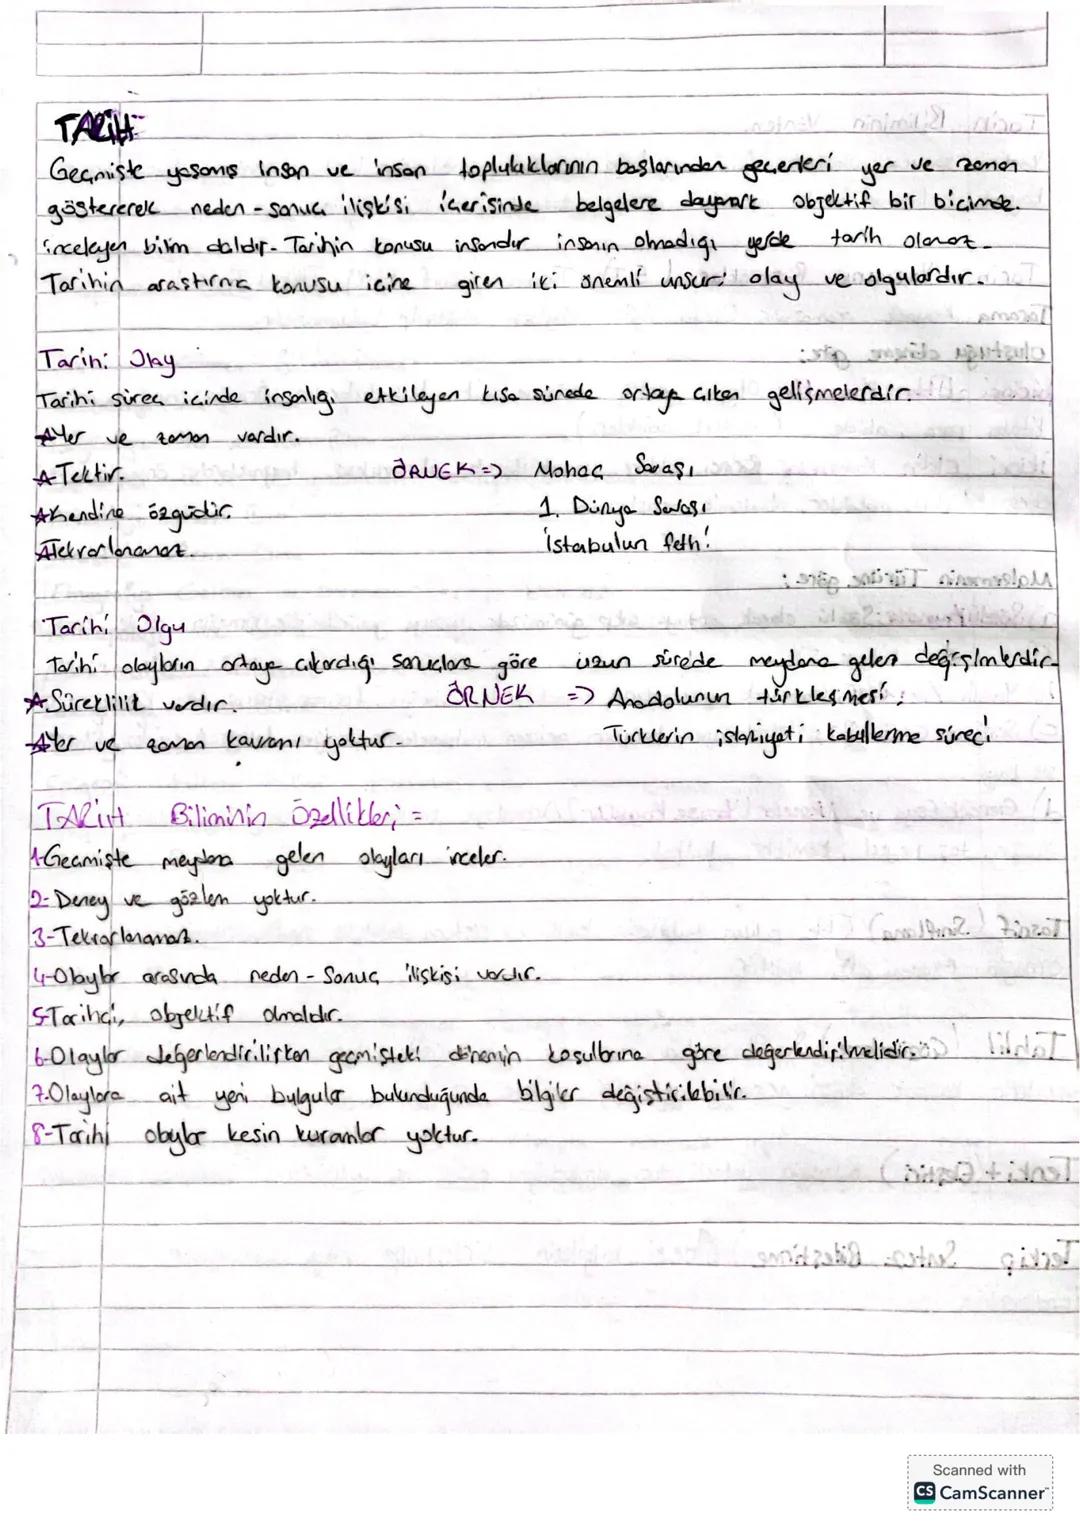 TARİH
Geçmişte yaşamış insan ve insan toplulaklarının başlarından geçenleri yer ve zaman
göstererek neden - sonuç ilişkisi içerisinde belgelere dayanark objektif bir biçimde.
inceleyen bilim daldır. Tarihin konusu insandır insanın olmadığı yerde tarih olamaz.
Tarihin araştırma konusu içine giren iki önemli unsur: olay ve olgulardır.
Tarihi Olay
Tarihi süreç içinde insanlığı etkileyen kısa sürede ortaya çıkan gelişmelerdir.
Yer ve zaman vardır.
-Tektir. ÖRNEK => Mohaç Savaşı
Kendine özgüdür. 1. Dünya Savaşı
Tekrarlanamaz. İstabulun fethi
Tarihi Olgu
Tarihi olayların ortaya çıkardığı sonuçlara göre uzun sürede meydana gelen değişimlerdir.
Süreklilik vardır. ÖRNEK => Anadolunun türkleşmesi:
Yer ve zaman kavramı yoktur. Türklerin islamiyeti kabullenme süreci
TARİH Biliminin Özellikleri =
1-Geçmişte meydana gelen olayları inceler.
2- Deney ve gözlem yoktur.
3-Tekrarlanamaz.
4-Olaylar arasında neden - Sonuç ilişkisi vardır.
5-Tarihçi, objektif olmaldır.
6-Olaylar değerlendirilirken geçmişteki dönemin koşullarına göre değerlendirilmelidir.
7-Olaylara ait yeni bulgular bulunduğunda bilgiler değiştirilebilir.
8-Tarihi olaylar kesin kuramlar yoktur.
Scanned with
CS CamScanner